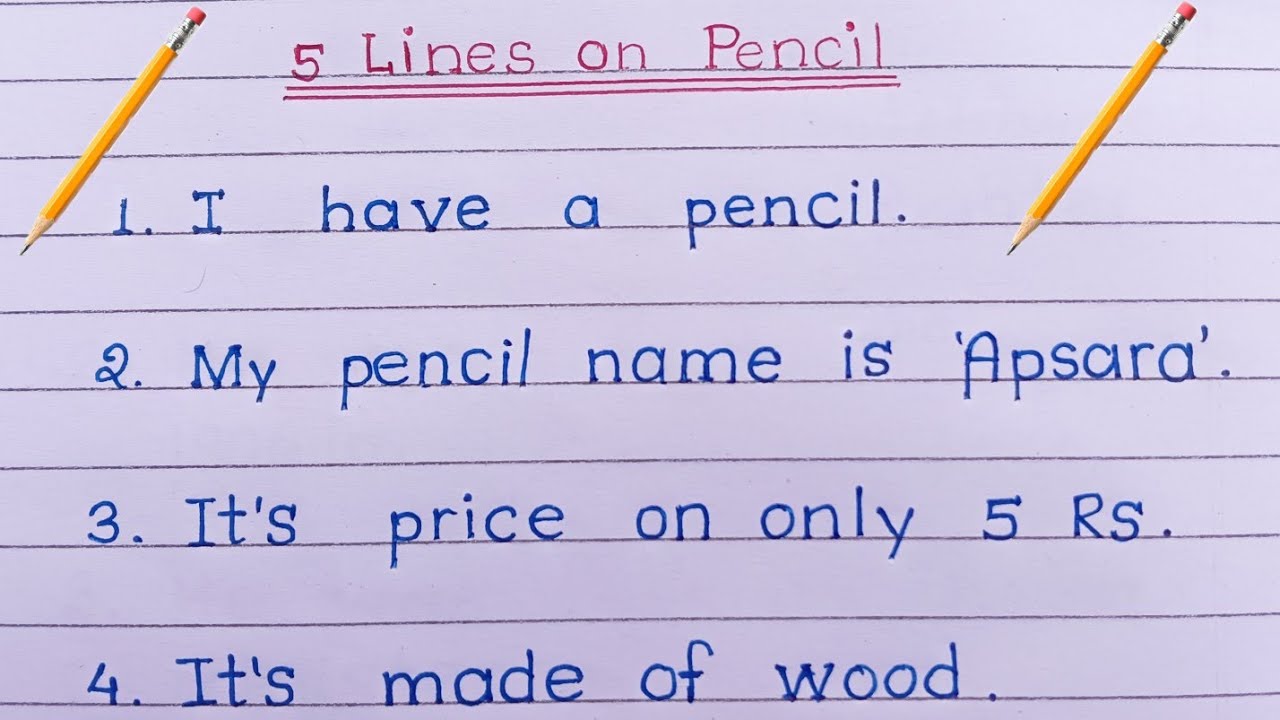 5 Lines on Pencil
1. I have a pencil.
2. My pencil name is 'Apsara'.
3. It's price on only 5 Rs.
4. It's made of wood.